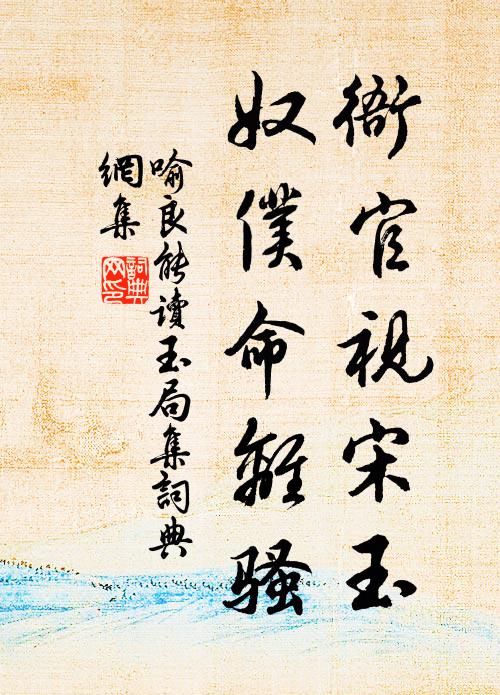 衙官視宋玉
奴僕命離騷
喻良能讀玉局集詞典
網集
詞典
网印